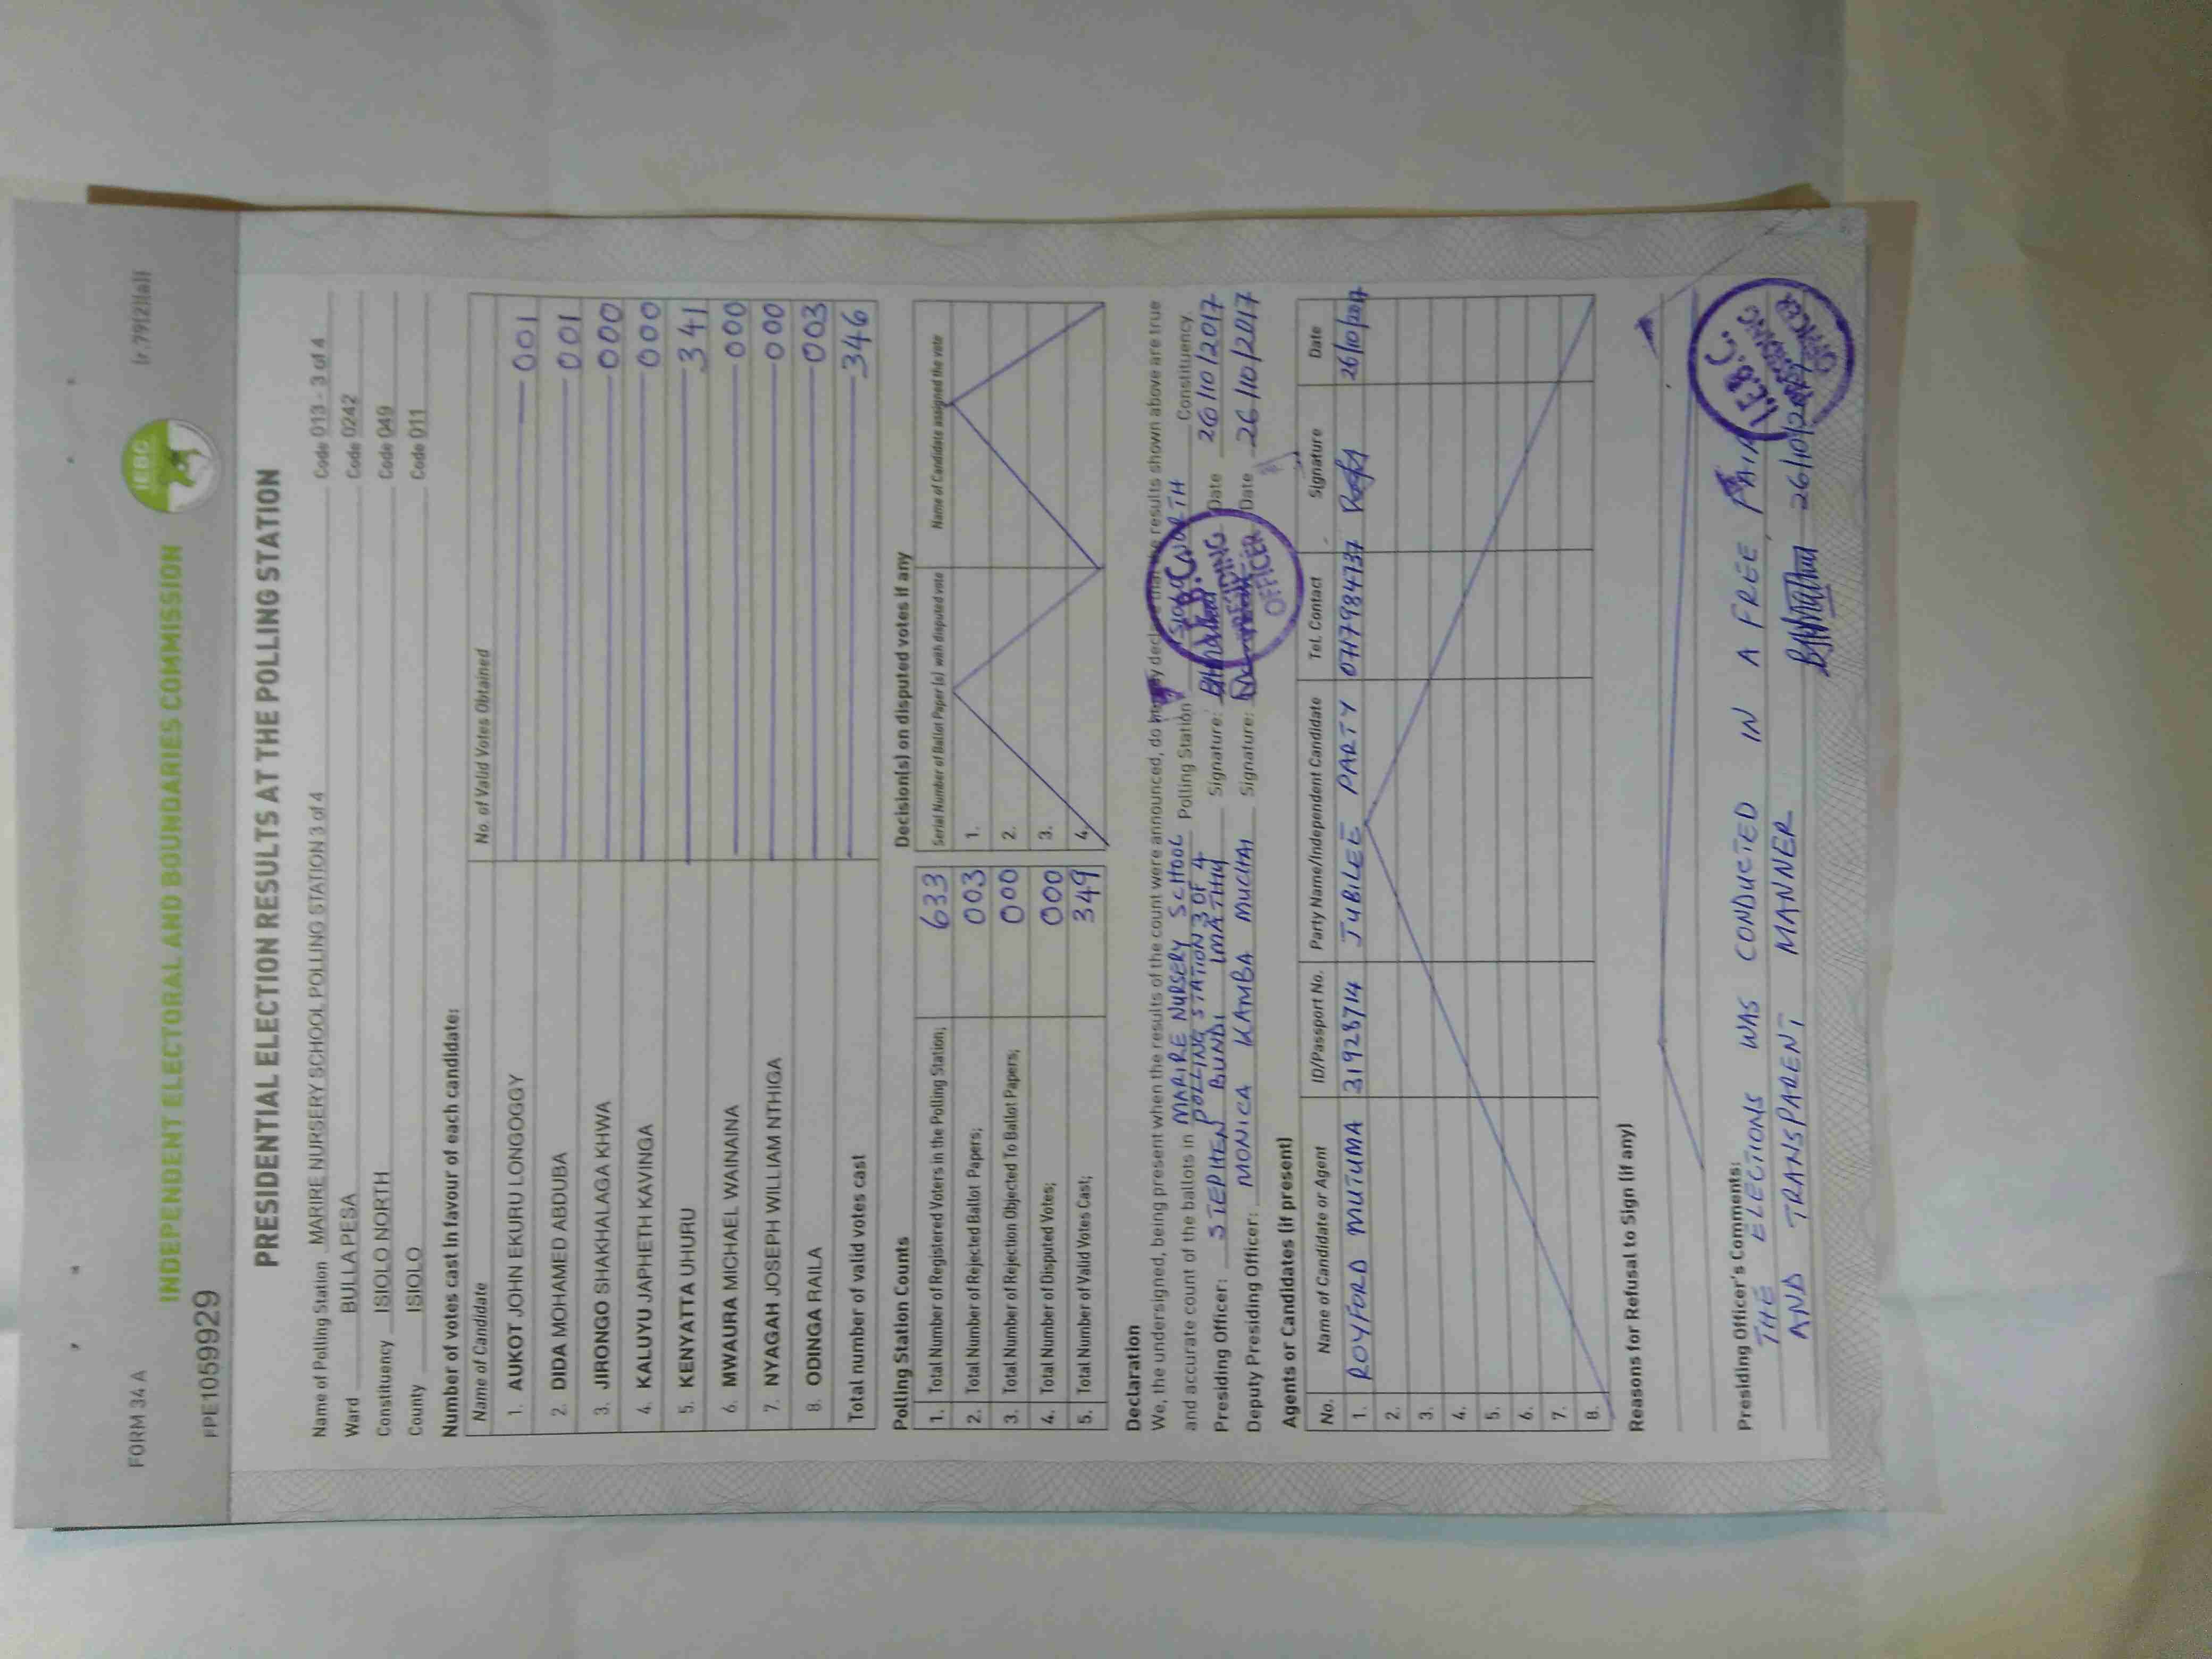 FORM 34 A
[r.79(2)(a)]
IEBC
INDEPENDENT ELECTORAL AND BOUNDARIES COMMISSION
FPE1059929
PRESIDENTIAL ELECTION RESULTS AT THE POLLING STATION
Name of Polling Station MARIRE NURSERY SCHOOL POLLING STATION 3 of 4 Code 013 - 3 of 4
Ward BULLA PESA Code 0242
Constituency ISIOLO NORTH Code 049
County ISIOLO Code 011
Number of votes cast in favour of each candidate:
Name of Candidate No. of Valid Votes Obtained
1. AUKOT JOHN EKURU LONGOGGY 001
2. DIDA MOHAMED ABDUBA 001
3. JIRONGO SHAKHALAGA KHWA 000
4. KALUYU JAPHETH KAVINGA 000
5. KENYATTA UHURU 341
6. MWAURA MICHAEL WAINAINA 000
7. NYAGAH JOSEPH WILLIAM NTHIGA 000
8. ODINGA RAILA 003
Total number of valid votes cast 346
Polling Station Counts
1. Total Number of Registered Voters in the Polling Station; 633
2. Total Number of Rejected Ballot Papers; 003
3. Total Number of Rejection Objected To Ballot Papers; 000
4. Total Number of Disputed Votes; 000
5. Total Number of Valid Votes Cast; 349
Decision(s) on disputed votes if any
Serial Number of Ballot Paper(s) with disputed vote Name of Candidate assigned the vote
1.
2.
3.
4.
Declaration
We, the undersigned, being present when the results of the count were announced, do hereby declare that the results shown above are true
and accurate count of the ballots in MARIRE NURSERY SCHOOL Polling Station ISIOLO NORTH Constituency.
POLLING STATION 3 OF 4
Presiding Officer: STEPHEN BUNDI IMATHIU Signature: Date 26/10/2017
Deputy Presiding Officer: MONICA KAMBA MUCHAI Signature: Date 26/10/2017
I.E.B.C.
PRESIDING
OFFICER
Agents or Candidates (if present)
No. Name of Candidate or Agent ID/Passport No. Party Name/Independent Candidate Tel. Contact Signature Date
1. ROYFORD MUTUMA 31928714 JUBILEE PARTY 0717984737 26/10/2017
2.
3.
4.
5.
6.
7.
8.
Reasons for Refusal to Sign (if any)
Presiding Officer's Comments:
THE ELECTIONS WAS CONDUCTED IN A FREE, FAIR
AND TRANSPARENT MANNER 26/10/2017
I.E.B.C.
PRESIDING
OFFICER